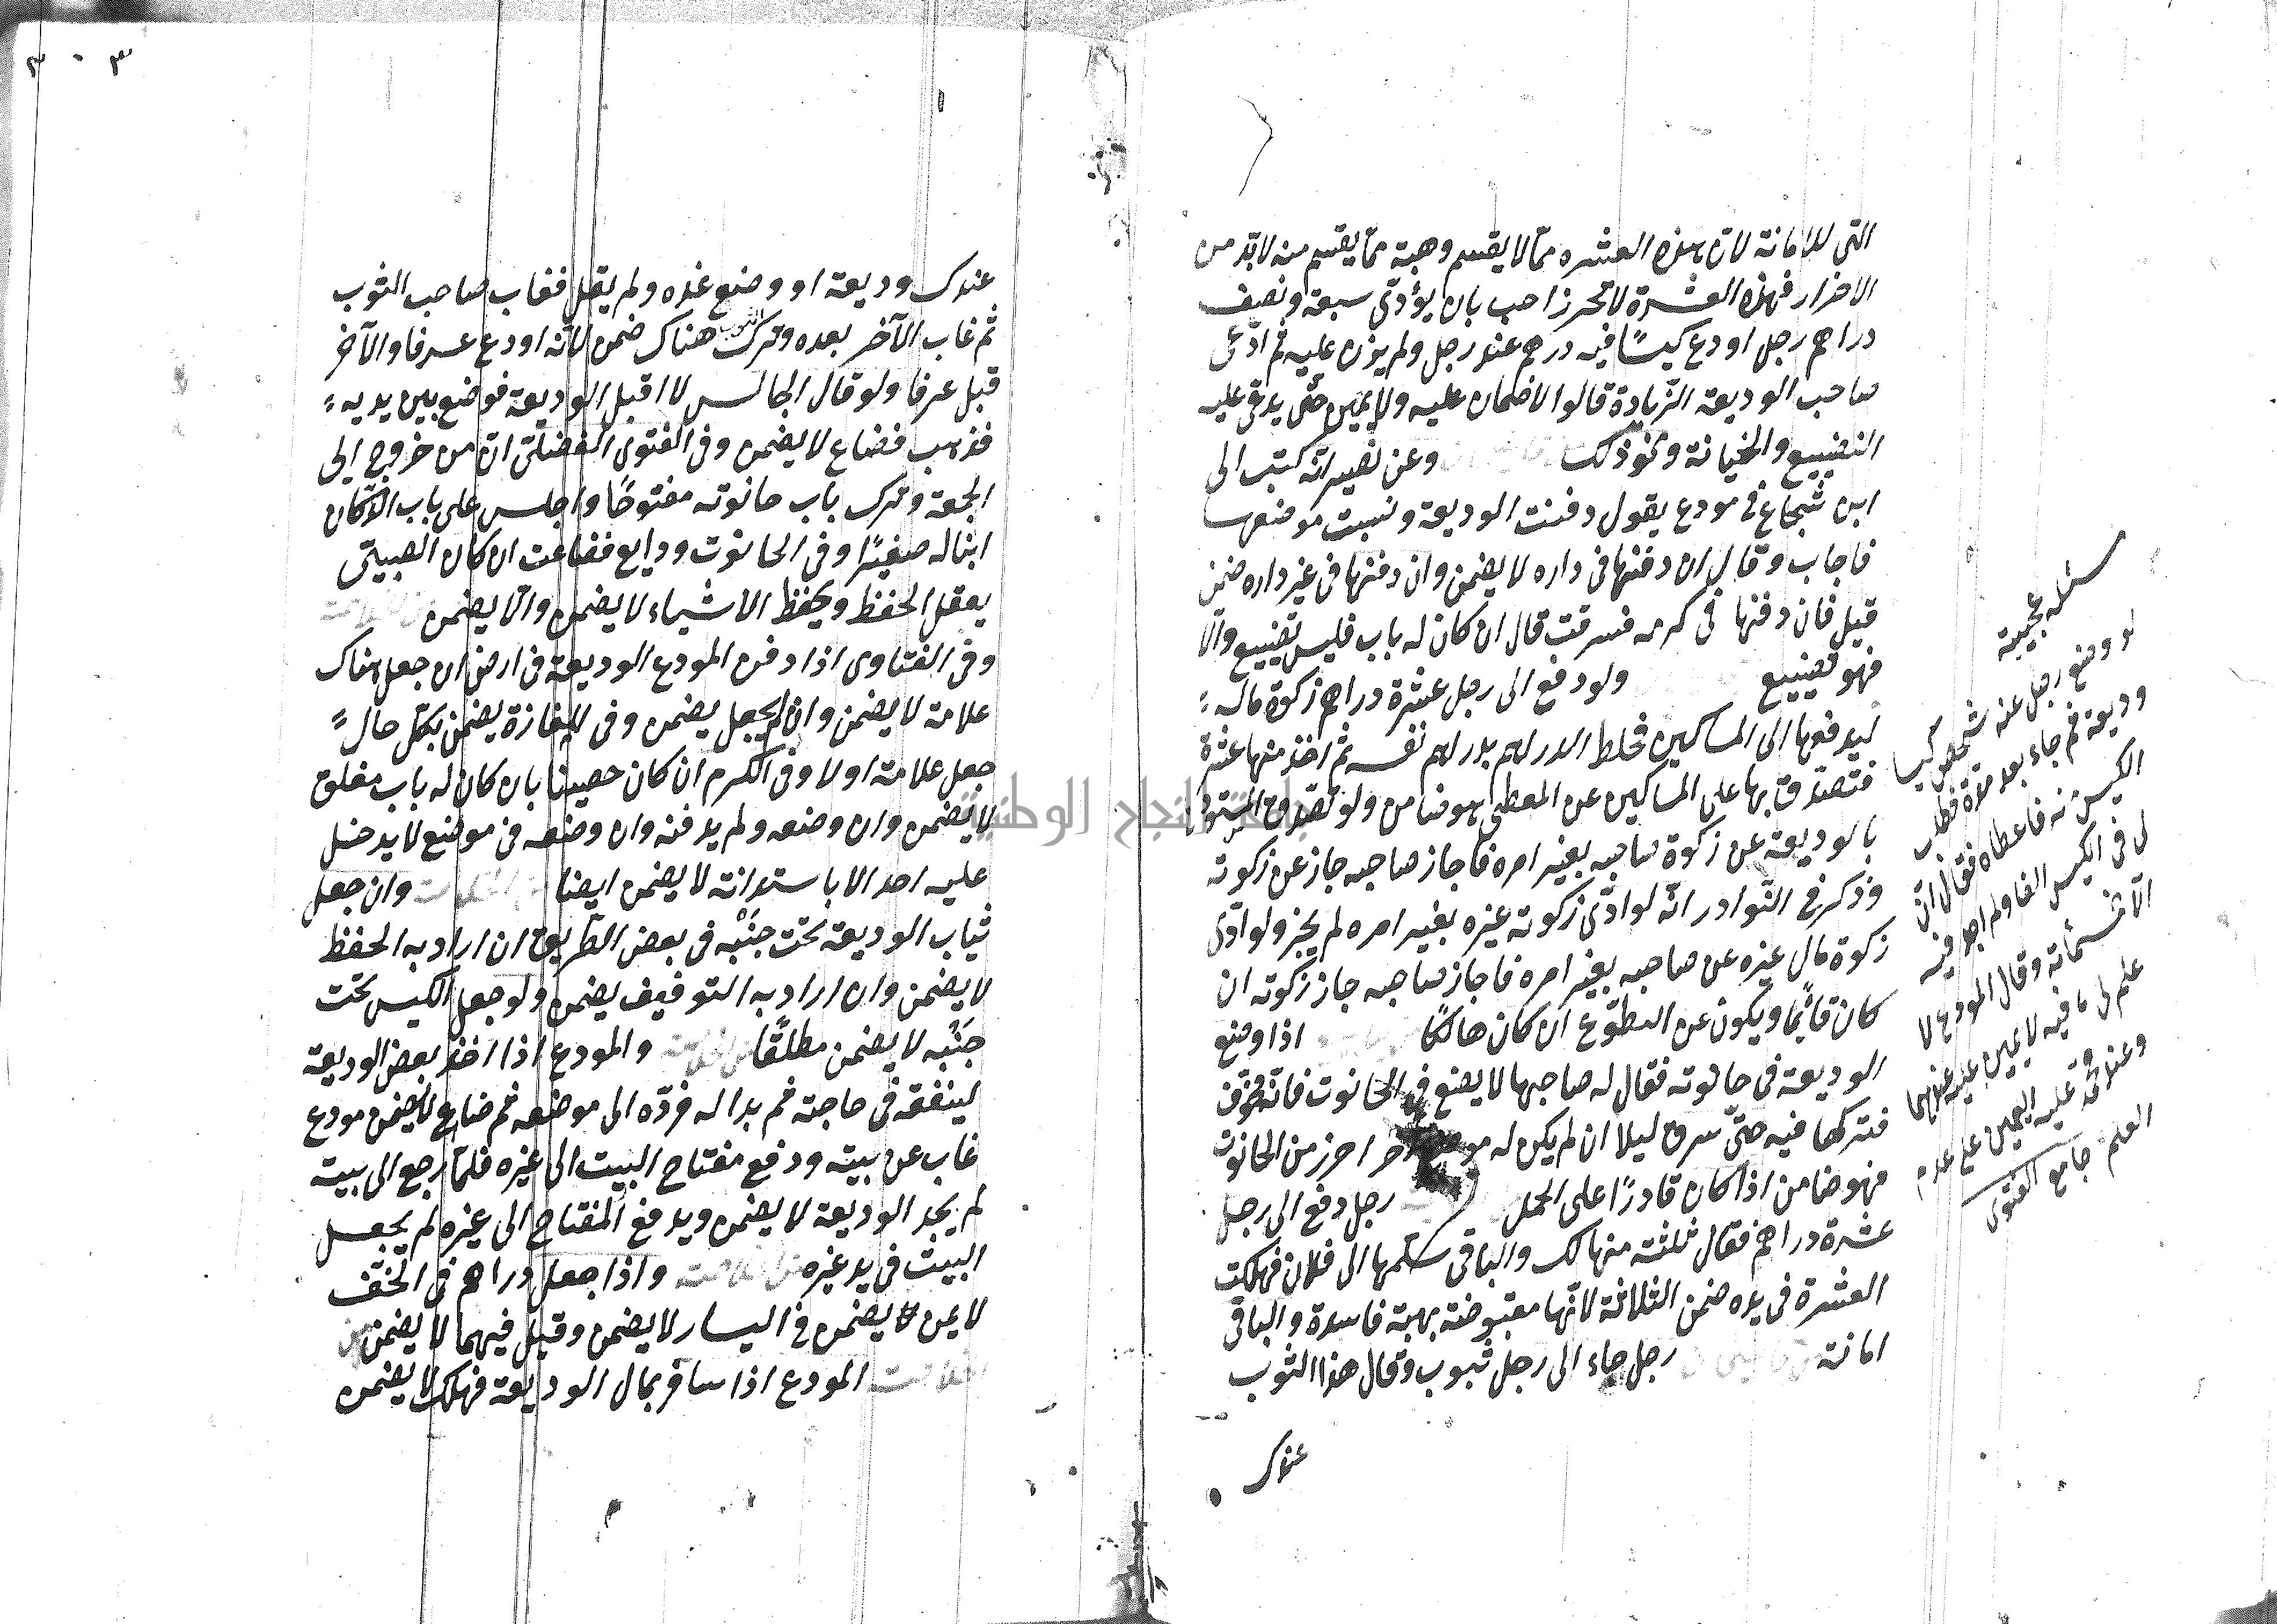 التى للامانة لان هذه العشرة مما لا يقسم وهبة مما يقسم منه لا بد من
الاضرار فهذه العشرة لا تحرز احب بان يؤدى سبعة ونصف
دراهم رجل اودع كيسًا فيه درهم عند رجل ولم يزن عليه ثم ادّعى
صاحب الوديعة الزيادة قالوا لاضمان عليه ولا يمين حتى يدعى عليه
التضييع والخيانة ونحو ذلك وعن نصير انه كتب الى
ابن شجاع فى مودع يقول دفنت الوديعة ونسيت موضعها
فاجاب وقال ان دفنها فى داره لا يضمن وان دفنها فى غير داره ضمن
قيل فان دفنها فى كرمه فسرقت قال ان كان له باب فليس تضييع والا
فهو تضييع ولو دفع الى رجل عشرة دراهم زكوة ماله
ليدفعها الى المساكين فخلط الدراهم بدراهم نفسه ثم اخذ منها عشرة
فتصدق بها على المساكين عن المعطى هو ضامن ولو تصدق المستودع
بالوديعة عن زكوة صاحبه بغير امره فاجاز صاحبه جاز عن زكوته
وذكر فى النوادر انه لو ادّى زكوته غيره بغير امره لم يجز ولو ادّى
زكوة مال غيره عن صاحبه بغير امره فاجاز صاحبه جاز زكوته ان
كان قائمًا ويكون عن التطوّع ان كان هالكًا اذا وضع
الوديعة فى حانوته فقال له صاحبها لا يضع فى الحانوت فانه مخوّف
فتركها فيه حتى سرق ليلا ان لم يكن له موضع اخر احرز من الحانوت
فهو ضامن اذا كان قادرًا على الحمل رجل دفع الى رجل
عشرة دراهم فقال ثلثة منها لك والباقى سلّمها الى فلان فهلكت
العشرة فى يده ضمن الثلاثة لانها مقبوضة بهبة فاسدة والباقى
امانة رجل جاء الى رجل ثبوب وقال هذا الثوب
عندك
مسئله عجيبة
لو وضع رجل عند شخص كيسا
وديعة ثم جاء بعد مدة فطلب
الكيس منه فاعطاه فقال ان
لى فى الكيس الفا ولم اجد فيه
الا خمسمائة وقال المودع لا
علم لى ما فيه لا يمين عليه عندهما
وعند محمد عليه اليمين على عدم
العلم جامع الفتوى
٣٠٣
عندك وديعة او وضع عنده ولم يقل فغاب صاحب الثوب
ثم غاب الآخر بعده وترك الثوب هناك ضمن لانه اودع عرفا والآخر
قبل عرفا ولو قال الجالس لا اقبل الوديعة فوضع بين يديه
فذهب فضاع لا يضمن وفى الفتوى الفضلى ان من خروج الى
الجمعة وترك باب حانوته مفتوحًا واجلس على باب الدكان
ابنا له صغيرًا وفى الحانوت ودايع فضاعت ان كان الصبيّى
يعقل الحفظ ويحفظ الاشياء لا يضمن والا يضمن
وفى الفتاوى اذا دفن المودع الوديعة فى ارض ان جعل هناك
علامة لا يضمن وان لم يجعل يضمن وفى المفازة يضمن بكل حال
جعل علامة اولا وفى الكرم ان كان حصينا بان كان له باب مغلق
لا يضمن وان وضعه ولم يدفنه وان وضعه فى موضع لا يدخل
عليه احد الا باستدانته لا يضمن ايضا وان جعل
ثياب الوديعة تحت جنبه فى بعض الطريق ان اراد به الحفظ
لا يضمن وان اراد به التوفيف يضمن ولو جعل الكيس تحت
جنبه لا يضمن مطلقًا والمودع اذا اخذ بعض الوديعة
لينفقه فى حاجته ثم بدا له فردّه الى موضعه ثم ضاع لا يضمن مودع
غاب عن بيته ودفع مفتاح البيت الى غيره فلما رجع الى بيته
لم يجد الوديعة لا يضمن ويدفع المفتاح الى غيره لم يجعل
البيت فى يد غيره واذا جعل دراهم فى الخفّ
لا يمن لا يضمن فى اليسار لا يضمن وقيل فيهما لا يضمن من
الخلاصة المودع اذا سافر بمال الوديعة فهلك لا يضمن
جامعة النجاح الوطنية